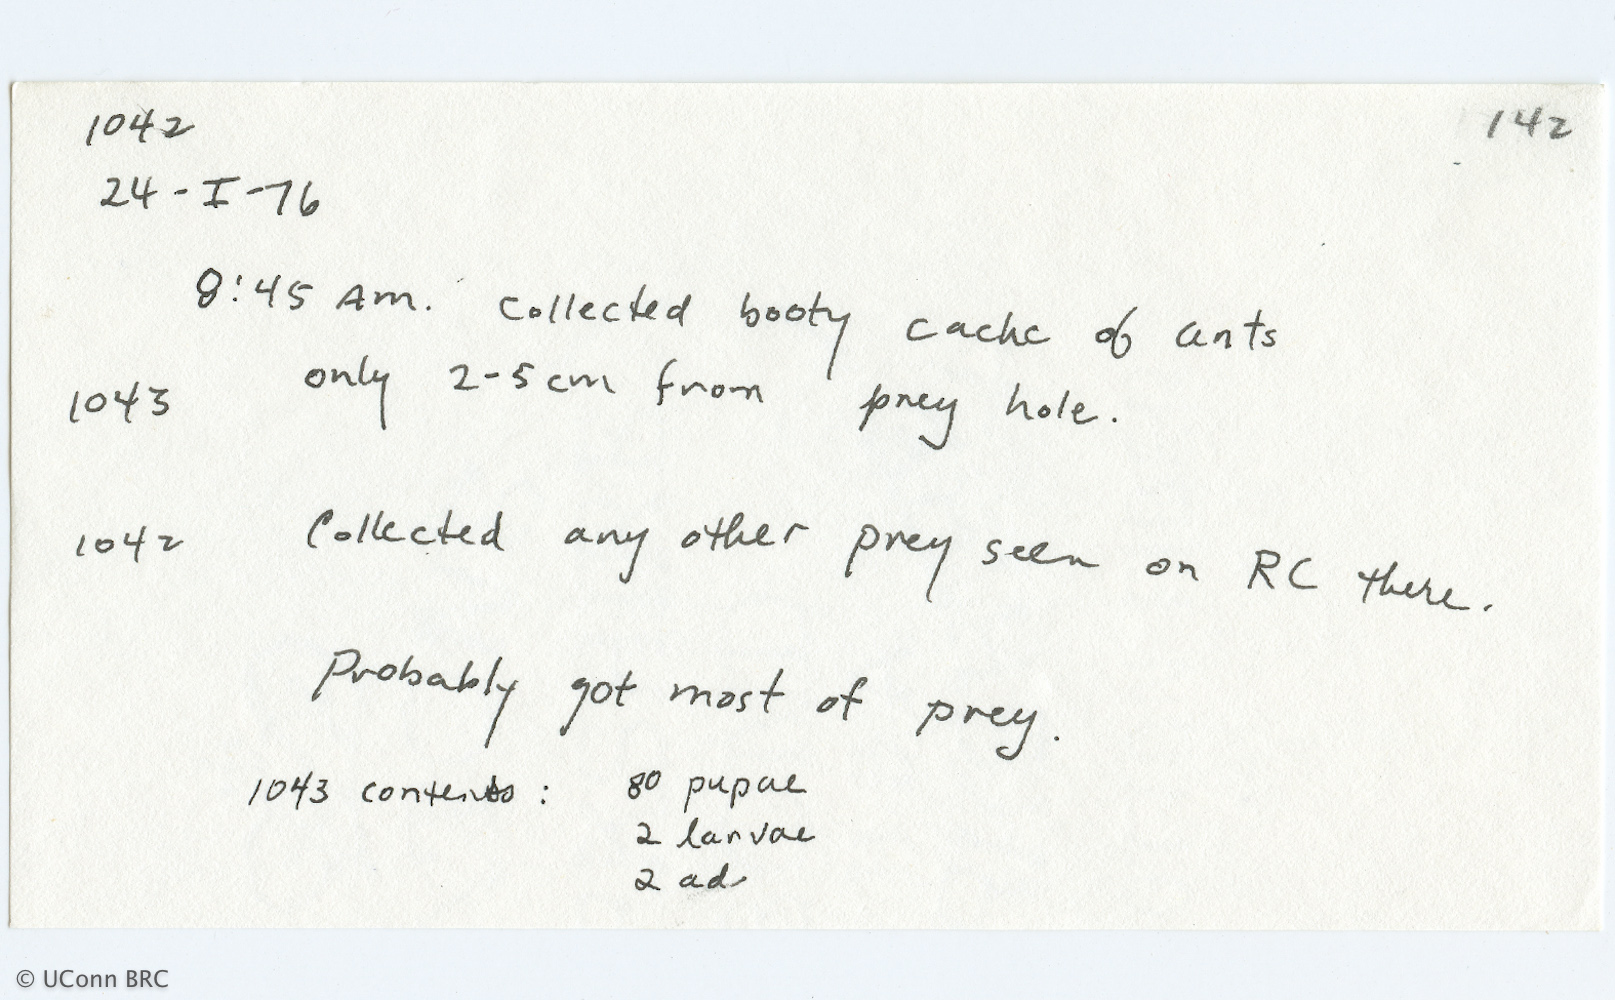 1042
142
24-I-76
8:45 Am. Collected booty cache of ants
1043 only 2-5cm from prey hole.
1042 Collected any other prey seen on RC there.
Probably got most of prey.
1043 contents: 80 pupae
2 larvae
2 ad
© UConn BRC